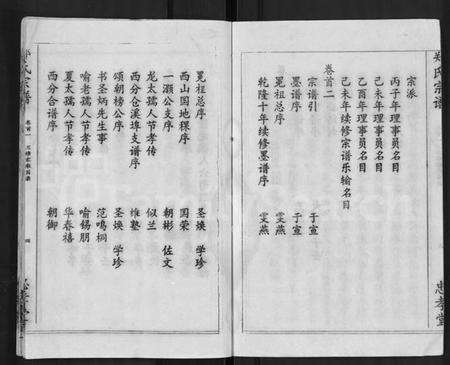 宗氏宗谱
宗派
丙子年理事员名目
己未年理事员名目
乙酉年理事员名目
己未年续修宗谱乐输名目
卷首二
宗谱引 于宣
墨谱序 于宣
冕祖总序 雯燕
乾隆十年续修墨谱序 雯燕
忠孝堂
冕祖总序 圣焕 学珍
西山国地稞序 国荣
一灏公支序 朝彬 佐文
龙太孺人节孝传 似兰
西分仓溪埠支谱序 维塾
颂朝榜公序 圣焕 学珍
书圣炳先生事 范鸣桐
喻老孺人节孝传 喻锡朋
夏太孺人节孝传 华春禧
西分合谱序 朝御
氏宗谱
卷首
四